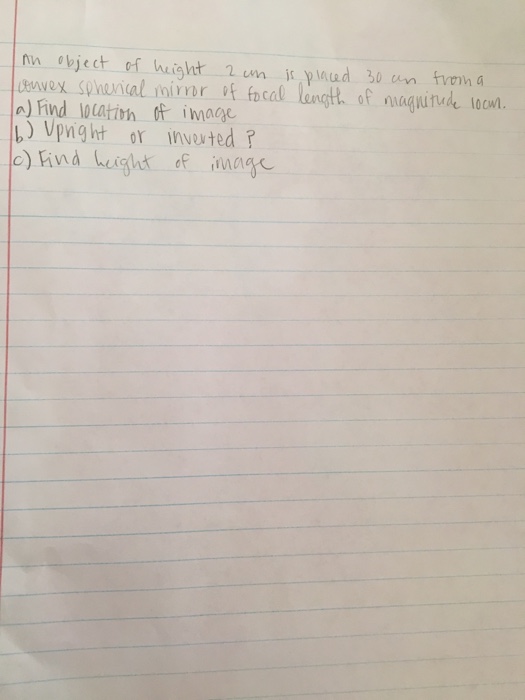 An object of height 2 cm is placed 30 cm from a
convex spherical mirror of focal length of magnitude 10cm.
a) Find location of image
b) Upright or inverted?
c) Find height of image